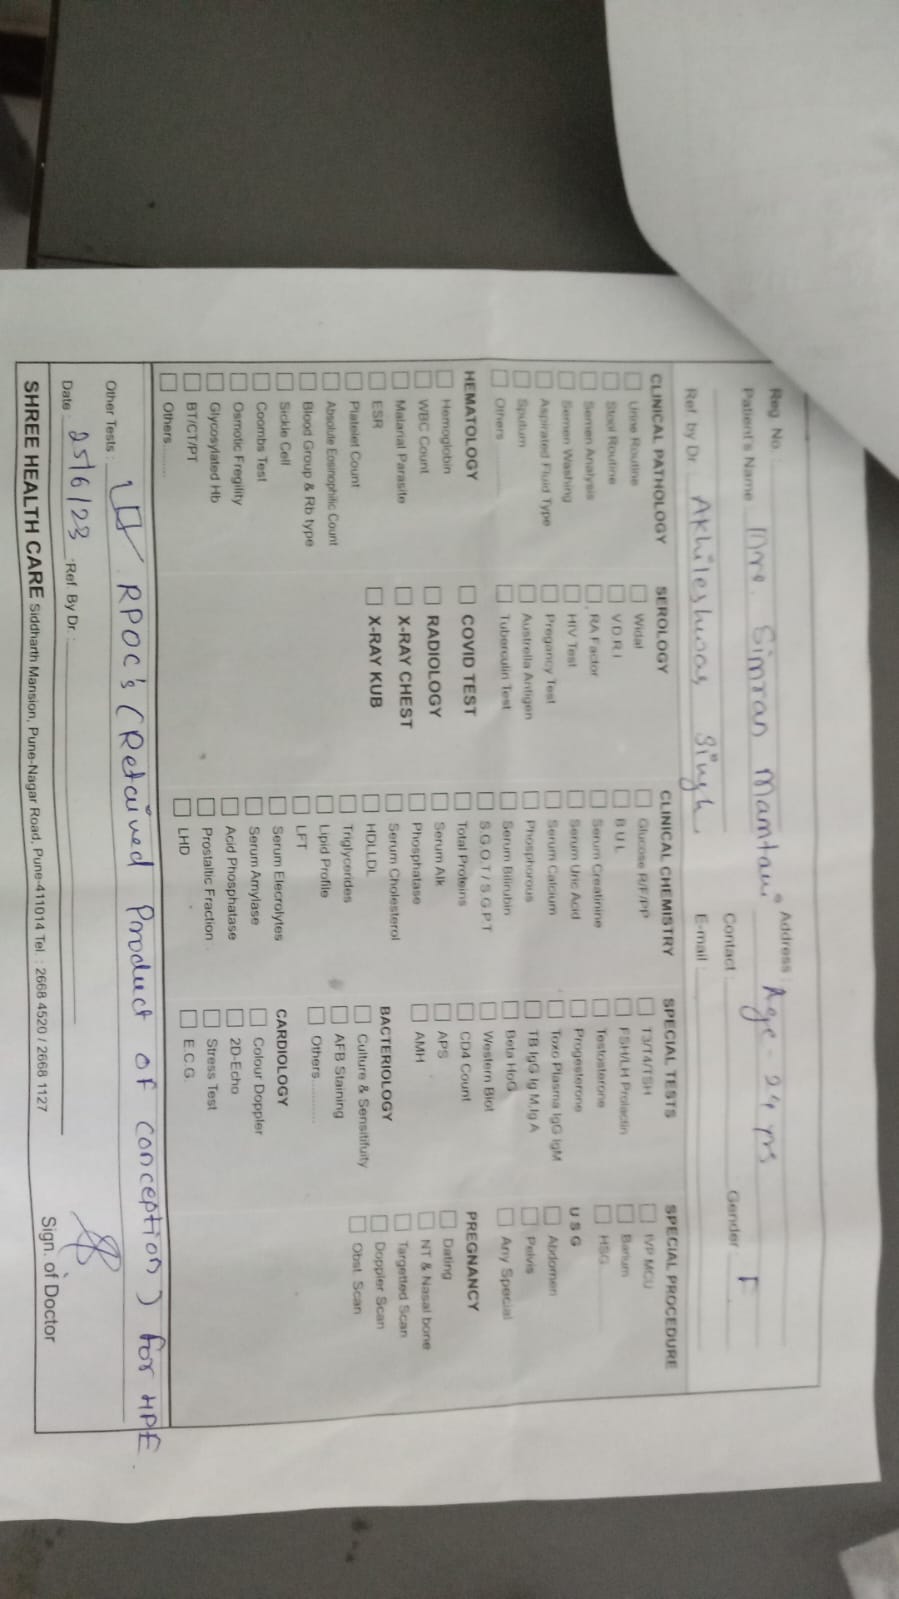 Reg. No. :
Patient's Name Mrs. Simran Mamtani Address : Age - 24 yrs
Contact : Gender F
Ref. by Dr. Akhileshwar Singh E-mail :
CLINICAL PATHOLOGY
Urine Routine
Stool Routine
Semen Analysis
Semen Washing
Aspirated Fluid Type
Sputum
Others
HEMATOLOGY
Hemoglobin
WBC Count
Malarial Parasite
ESR
Platelet Count
Absolute Eosinophilic Count
Blood Group & Rb type
Sickle Cell
Coombs Test
Osmotic Fregility
Glycosylated Hb
BT/CT/PT
Others........
SEROLOGY
Widal
V D R I
RA Factor
HIV Test
Pregancy Test
Australia Antigen
Tuberculin Test
COVID TEST
RADIOLOGY
X-RAY CHEST
X-RAY KUB
CLINICAL CHEMISTRY
Glucose R/F/PP
B U L
Serum Creatinine
Serum Uric Acid
Serum Calcium
Phosphorous
Serum Bilirubin
S.G.O.T / S.G.P.T
Total Proteins
Serum Alk
Phosphatase
Serum Cholesterol
HDLLDL
Triglycerides
Lipid Profile
LFT
Serum Elecrolytes
Serum Amylase
Acid Phosphatase
Prostaltic Fraction
LHD
SPECIAL TESTS
T3/T4/TSH
FSH/LH Prolactin
Testosterone
Progesterone
Toxo Plasma IgG IgM
TB IgG Ig M,Ig A
Beta HoG
Western Blot
CD4 Count
APS
AMH
BACTERIOLOGY
Culture & Sensitifuity
AFB Staining
Others............
CARDIOLOGY
Colour Doppler
2D-Echo
Stress Test
E.C.G.
SPECIAL PROCEDURE
IVP MCU
Barium
HSG
U S G
Abdomen
Pelvis
Any Special
PREGNANCY
Dating
NT & Nasal bone
Targetted Scan
Doppler Scan
Obst. Scan
Other Tests : RPOC's (Retained Product of conception) for HPE.
Date : 25/6/23 Ref. By Dr. :
Sign. of Doctor
SHREE HEALTH CARE Siddharth Mansion, Pune-Nagar Road, Pune-411014 Tel. : 2668 4520 / 2668 1127